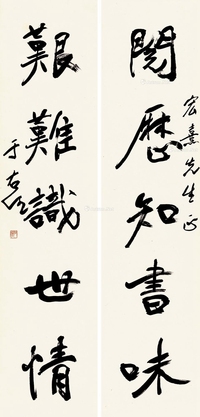 宏熹先生正
閱歷知書味
艱難識世情
于右任